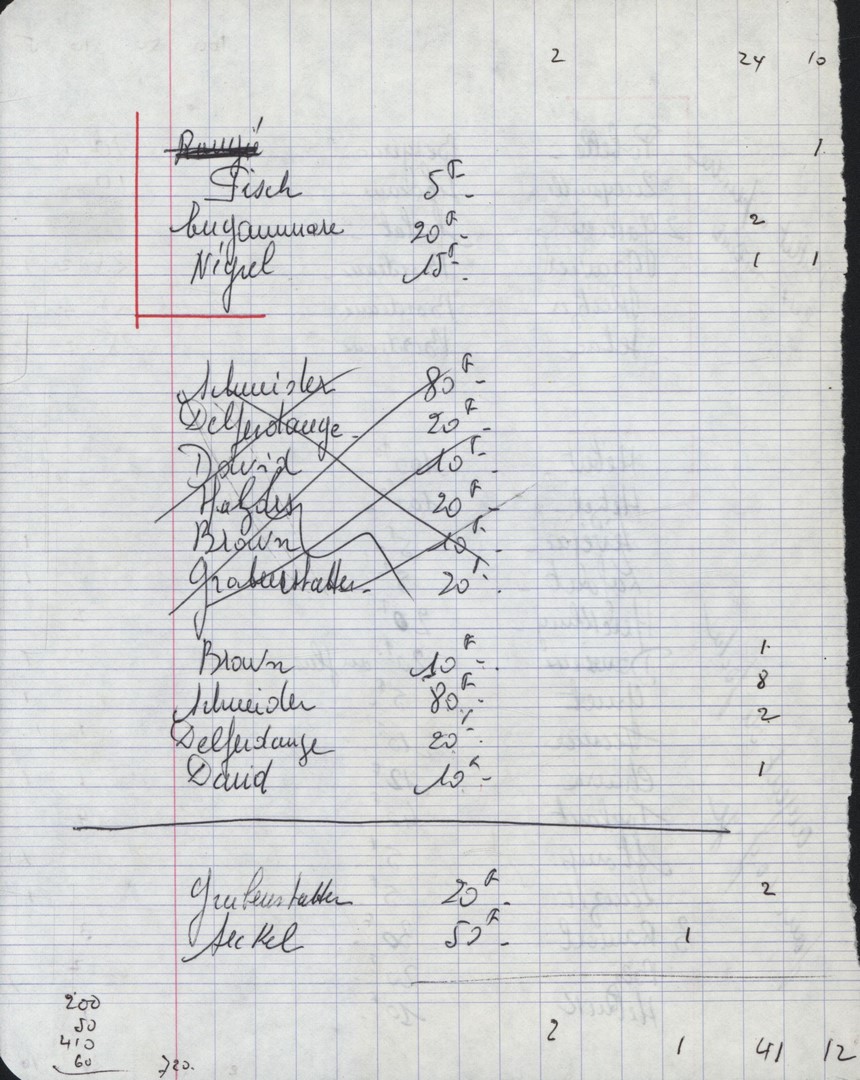 2 24 10
1
Fisch 5F-
20F- 2
Nigrel 15F- 1 1
Schneider 80F-
Delferdange- 20F-
David 10F-
20F-
Brown 10F-
Grabenstatter- 20F-
Brown 10F- 1
Schneider 80F- 8
Delferdange 20F- 2
David 10F- 1
Grabenstatter 20F- 2
50F- 1
200
50
410
60
720.
2 1 41 12